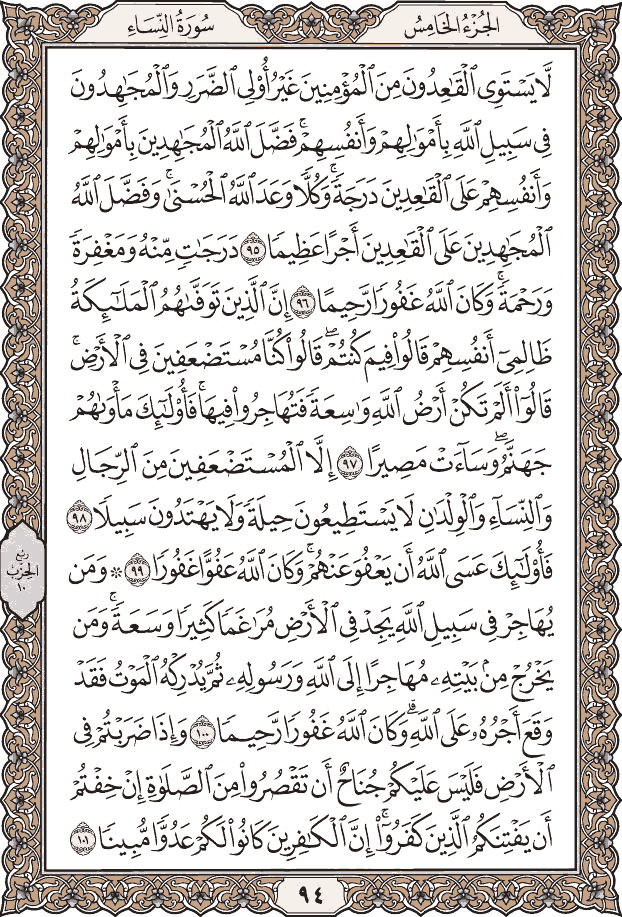 الجُزْءُ الخَامِسُ
سُورَةُ النِّسَاءِ
لَّا يَسْتَوِي ٱلْقَٰعِدُونَ مِنَ ٱلْمُؤْمِنِينَ غَيْرُ أُو۟لِي ٱلضَّرَرِ وَٱلْمُجَٰهِدُونَ
فِي سَبِيلِ ٱللَّهِ بِأَمْوَٰلِهِمْ وَأَنفُسِهِمْۚ فَضَّلَ ٱللَّهُ ٱلْمُجَٰهِدِينَ بِأَمْوَٰلِهِمْ
وَأَنفُسِهِمْ عَلَى ٱلْقَٰعِدِينَ دَرَجَةًۚ وَكُلًّا وَعَدَ ٱللَّهُ ٱلْحُسْنَىٰۚ وَفَضَّلَ ٱللَّهُ
ٱلْمُجَٰهِدِينَ عَلَى ٱلْقَٰعِدِينَ أَجْرًا عَظِيمًا ٩٥ دَرَجَٰتٍ مِّنْهُ وَمَغْفِرَةً
وَرَحْمَةًۚ وَكَانَ ٱللَّهُ غَفُورًا رَّحِيمًا ٩٦ إِنَّ ٱلَّذِينَ تَوَفَّىٰهُمُ ٱلْمَلَٰٓئِكَةُ
ظَالِمِيٓ أَنفُسِهِمْ قَالُوا۟ فِيمَ كُنتُمْۖ قَالُوا۟ كُنَّا مُسْتَضْعَفِينَ فِي ٱلْأَرْضِۚ
قَالُوٓا۟ أَلَمْ تَكُنْ أَرْضُ ٱللَّهِ وَٰسِعَةً فَتُهَاجِرُوا۟ فِيهَاۚ فَأُو۟لَٰٓئِكَ مَأْوَىٰهُمْ
جَهَنَّمُۖ وَسَآءَتْ مَصِيرًا ٩٧ إِلَّا ٱلْمُسْتَضْعَفِينَ مِنَ ٱلرِّجَالِ
وَٱلنِّسَآءِ وَٱلْوِلْدَٰنِ لَا يَسْتَطِيعُونَ حِيلَةً وَلَا يَهْتَدُونَ سَبِيلًا ٩٨
فَأُو۟لَٰٓئِكَ عَسَى ٱللَّهُ أَن يَعْفُوَ عَنْهُمْۚ وَكَانَ ٱللَّهُ عَفُوًّا غَفُورًا ٩٩ ۞ وَمَن
يُهَاجِرْ فِي سَبِيلِ ٱللَّهِ يَجِدْ فِي ٱلْأَرْضِ مُرَٰغَمًا كَثِيرًا وَسَعَةًۚ وَمَن
يَخْرُجْ مِنۢ بَيْتِهِۦ مُهَاجِرًا إِلَى ٱللَّهِ وَرَسُولِهِۦ ثُمَّ يُدْرِكْهُ ٱلْمَوْتُ فَقَدْ
وَقَعَ أَجْرُهُۥ عَلَى ٱللَّهِۗ وَكَانَ ٱللَّهُ غَفُورًا رَّحِيمًا ١٠٠ وَإِذَا ضَرَبْتُمْ فِي
ٱلْأَرْضِ فَلَيْسَ عَلَيْكُمْ جُنَاحٌ أَن تَقْصُرُوا۟ مِنَ ٱلصَّلَوٰةِ إِنْ خِفْتُمْ
أَن يَفْتِنَكُمُ ٱلَّذِينَ كَفَرُوٓا۟ۚ إِنَّ ٱلْكَٰفِرِينَ كَانُوا۟ لَكُمْ عَدُوًّا مُّبِينًا ١٠١
ربع
الحزب
١٠
٩٤